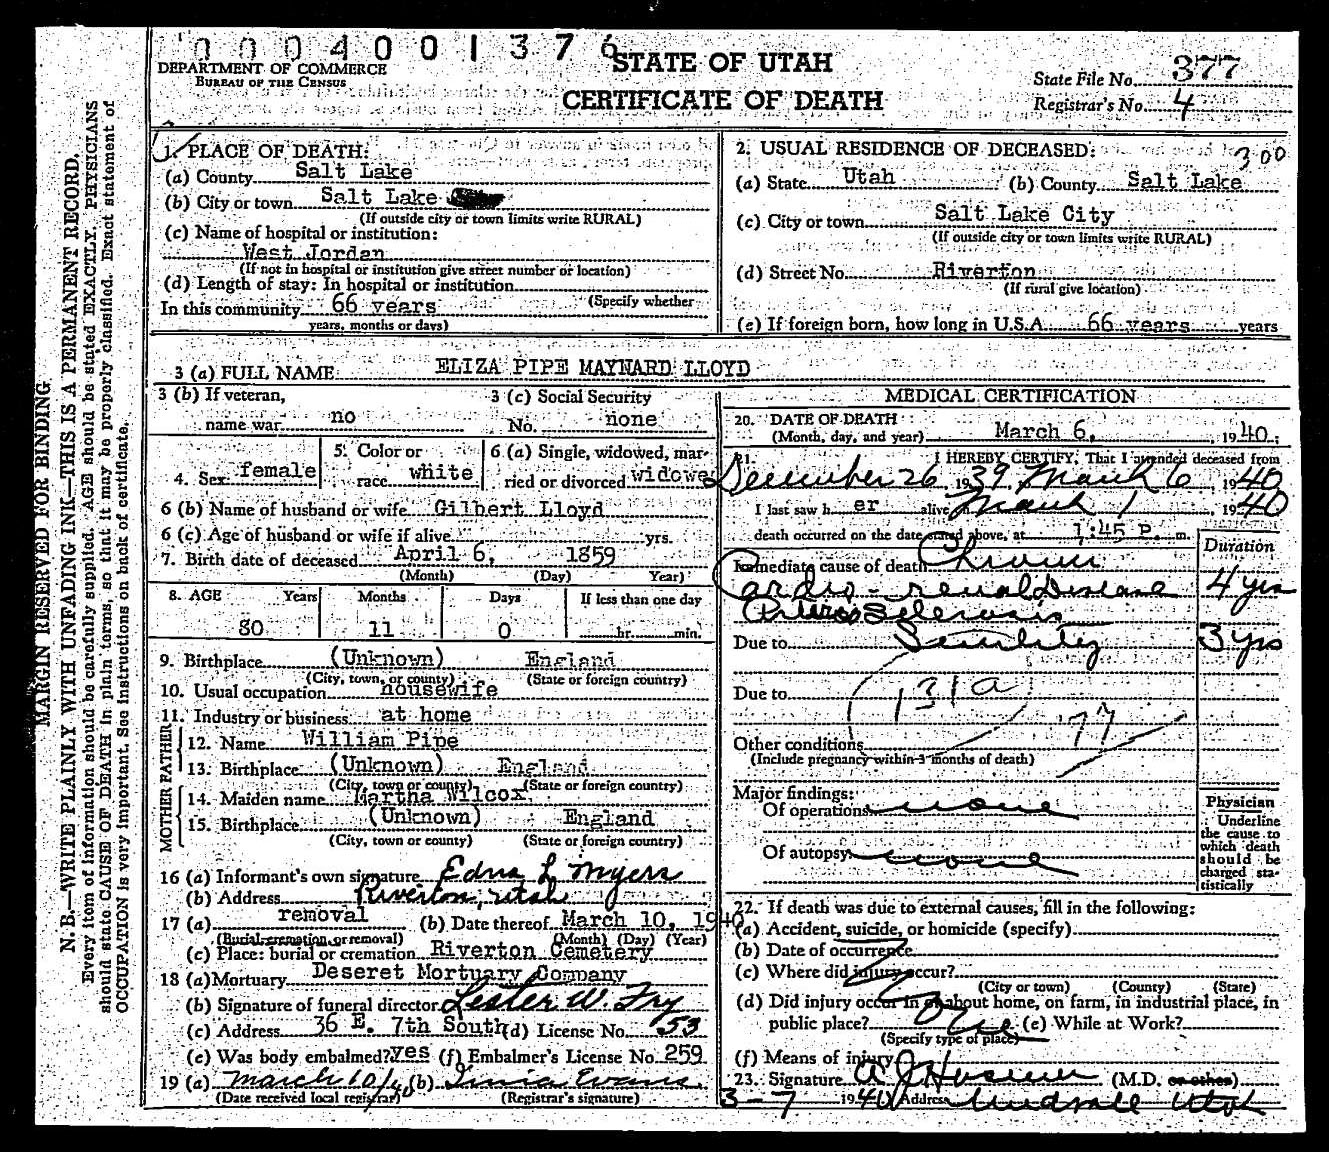 0 0 0 4 0 0 1 3 7 6
DEPARTMENT OF COMMERCE
BUREAU OF THE CENSUS
STATE OF UTAH
CERTIFICATE OF DEATH
State File No. 377
Registrar's No. 4
MARGIN RESERVED FOR BINDING
N. B.—WRITE PLAINLY WITH UNFADING INK—THIS IS A PERMANENT RECORD.
Every item of information should be carefully supplied. AGE should be stated EXACTLY. PHYSICIANS
should state CAUSE OF DEATH in plain terms, so that it may be properly classified. Exact statement of
OCCUPATION is very important. See instructions on back of certificate.
1. PLACE OF DEATH:
(a) County Salt Lake
(b) City or town Salt Lake
(If outside city or town limits write RURAL)
(c) Name of hospital or institution:
West Jordan
(If not in hospital or institution give street number or location)
(d) Length of stay: In hospital or institution
(Specify whether
In this community 66 years
years, months or days)
2. USUAL RESIDENCE OF DECEASED:
300
(a) State Utah (b) County Salt Lake
(c) City or town Salt Lake City
(If outside city or town limits write RURAL)
(d) Street No. Riverton
(If rural give location)
(e) If foreign born, how long in U.S.A. 66 years years
3 (a) FULL NAME ELIZA PIPE MAYNARD LLOYD
3 (b) If veteran,
name war no
3 (c) Social Security
No. none
4. Sex female
5. Color or
race white
6 (a) Single, widowed, mar-
ried or divorced widowe
6 (b) Name of husband or wife Gilbert Lloyd
6 (c) Age of husband or wife if alive yrs.
7. Birth date of deceased April 6, 1859
(Month) (Day) Year)
8. AGE Years Months Days If less than one day
80 11 0 hr. min.
9. Birthplace (Unknown) England
(City, town, or county) (State or foreign country)
10. Usual occupation housewife
11. Industry or business at home
FATHER
12. Name William Pipe
13. Birthplace (Unknown) England
(City, town or county) (State or foreign country)
MOTHER
14. Maiden name Martha Wilcox
15. Birthplace (Unknown) England
(City, town or county) (State or foreign country)
16 (a) Informant's own signature Edna L Myers
(b) Address Riverton, Utah
17 (a) removal (b) Date thereof March 10, 1940
(Burial, cremation, or removal) (Month) (Day) (Year)
(c) Place: burial or cremation Riverton Cemetery
18 (a) Mortuary Deseret Mortuary Company
(b) Signature of funeral director Lester W. Fry
(c) Address 36 E. 7th South (d) License No. 53
(e) Was body embalmed? yes (f) Embalmer's License No. 259
19 (a) March 10/40 (b) Evans
(Date received local registrar) (Registrar's signature)
MEDICAL CERTIFICATION
20. DATE OF DEATH
(Month, day, and year) March 6, , 1940.
21. I HEREBY CERTIFY, That I attended deceased from
December 26, 1939, March 6 1940
I last saw h er alive March 1, 1940
death occurred on the date stated above, at 1:45 P. m.
Duration
Immediate cause of death Chronic
Cardio-renal Disease 4 yrs
Arterio Sclerosis
Due to Senility 3 yrs
Due to 131a
77
Other conditions
(Include pregnancy within 3 months of death)
Major findings:
Of operations none
Of autopsy none
Physician
Underline
the cause to
which death
should be
charged sta-
tistically
22. If death was due to external causes, fill in the following:
(a) Accident, suicide, or homicide (specify)
(b) Date of occurrence
(c) Where did injury occur?
(City or town) (County) (State)
(d) Did injury occur in or about home, on farm, in industrial place, in
public place? (e) While at Work?
(Specify type of place)
(f) Means of injury
23. Signature A J Hosmer (M.D. or other)
3-7 1940 Address Midvale Utah